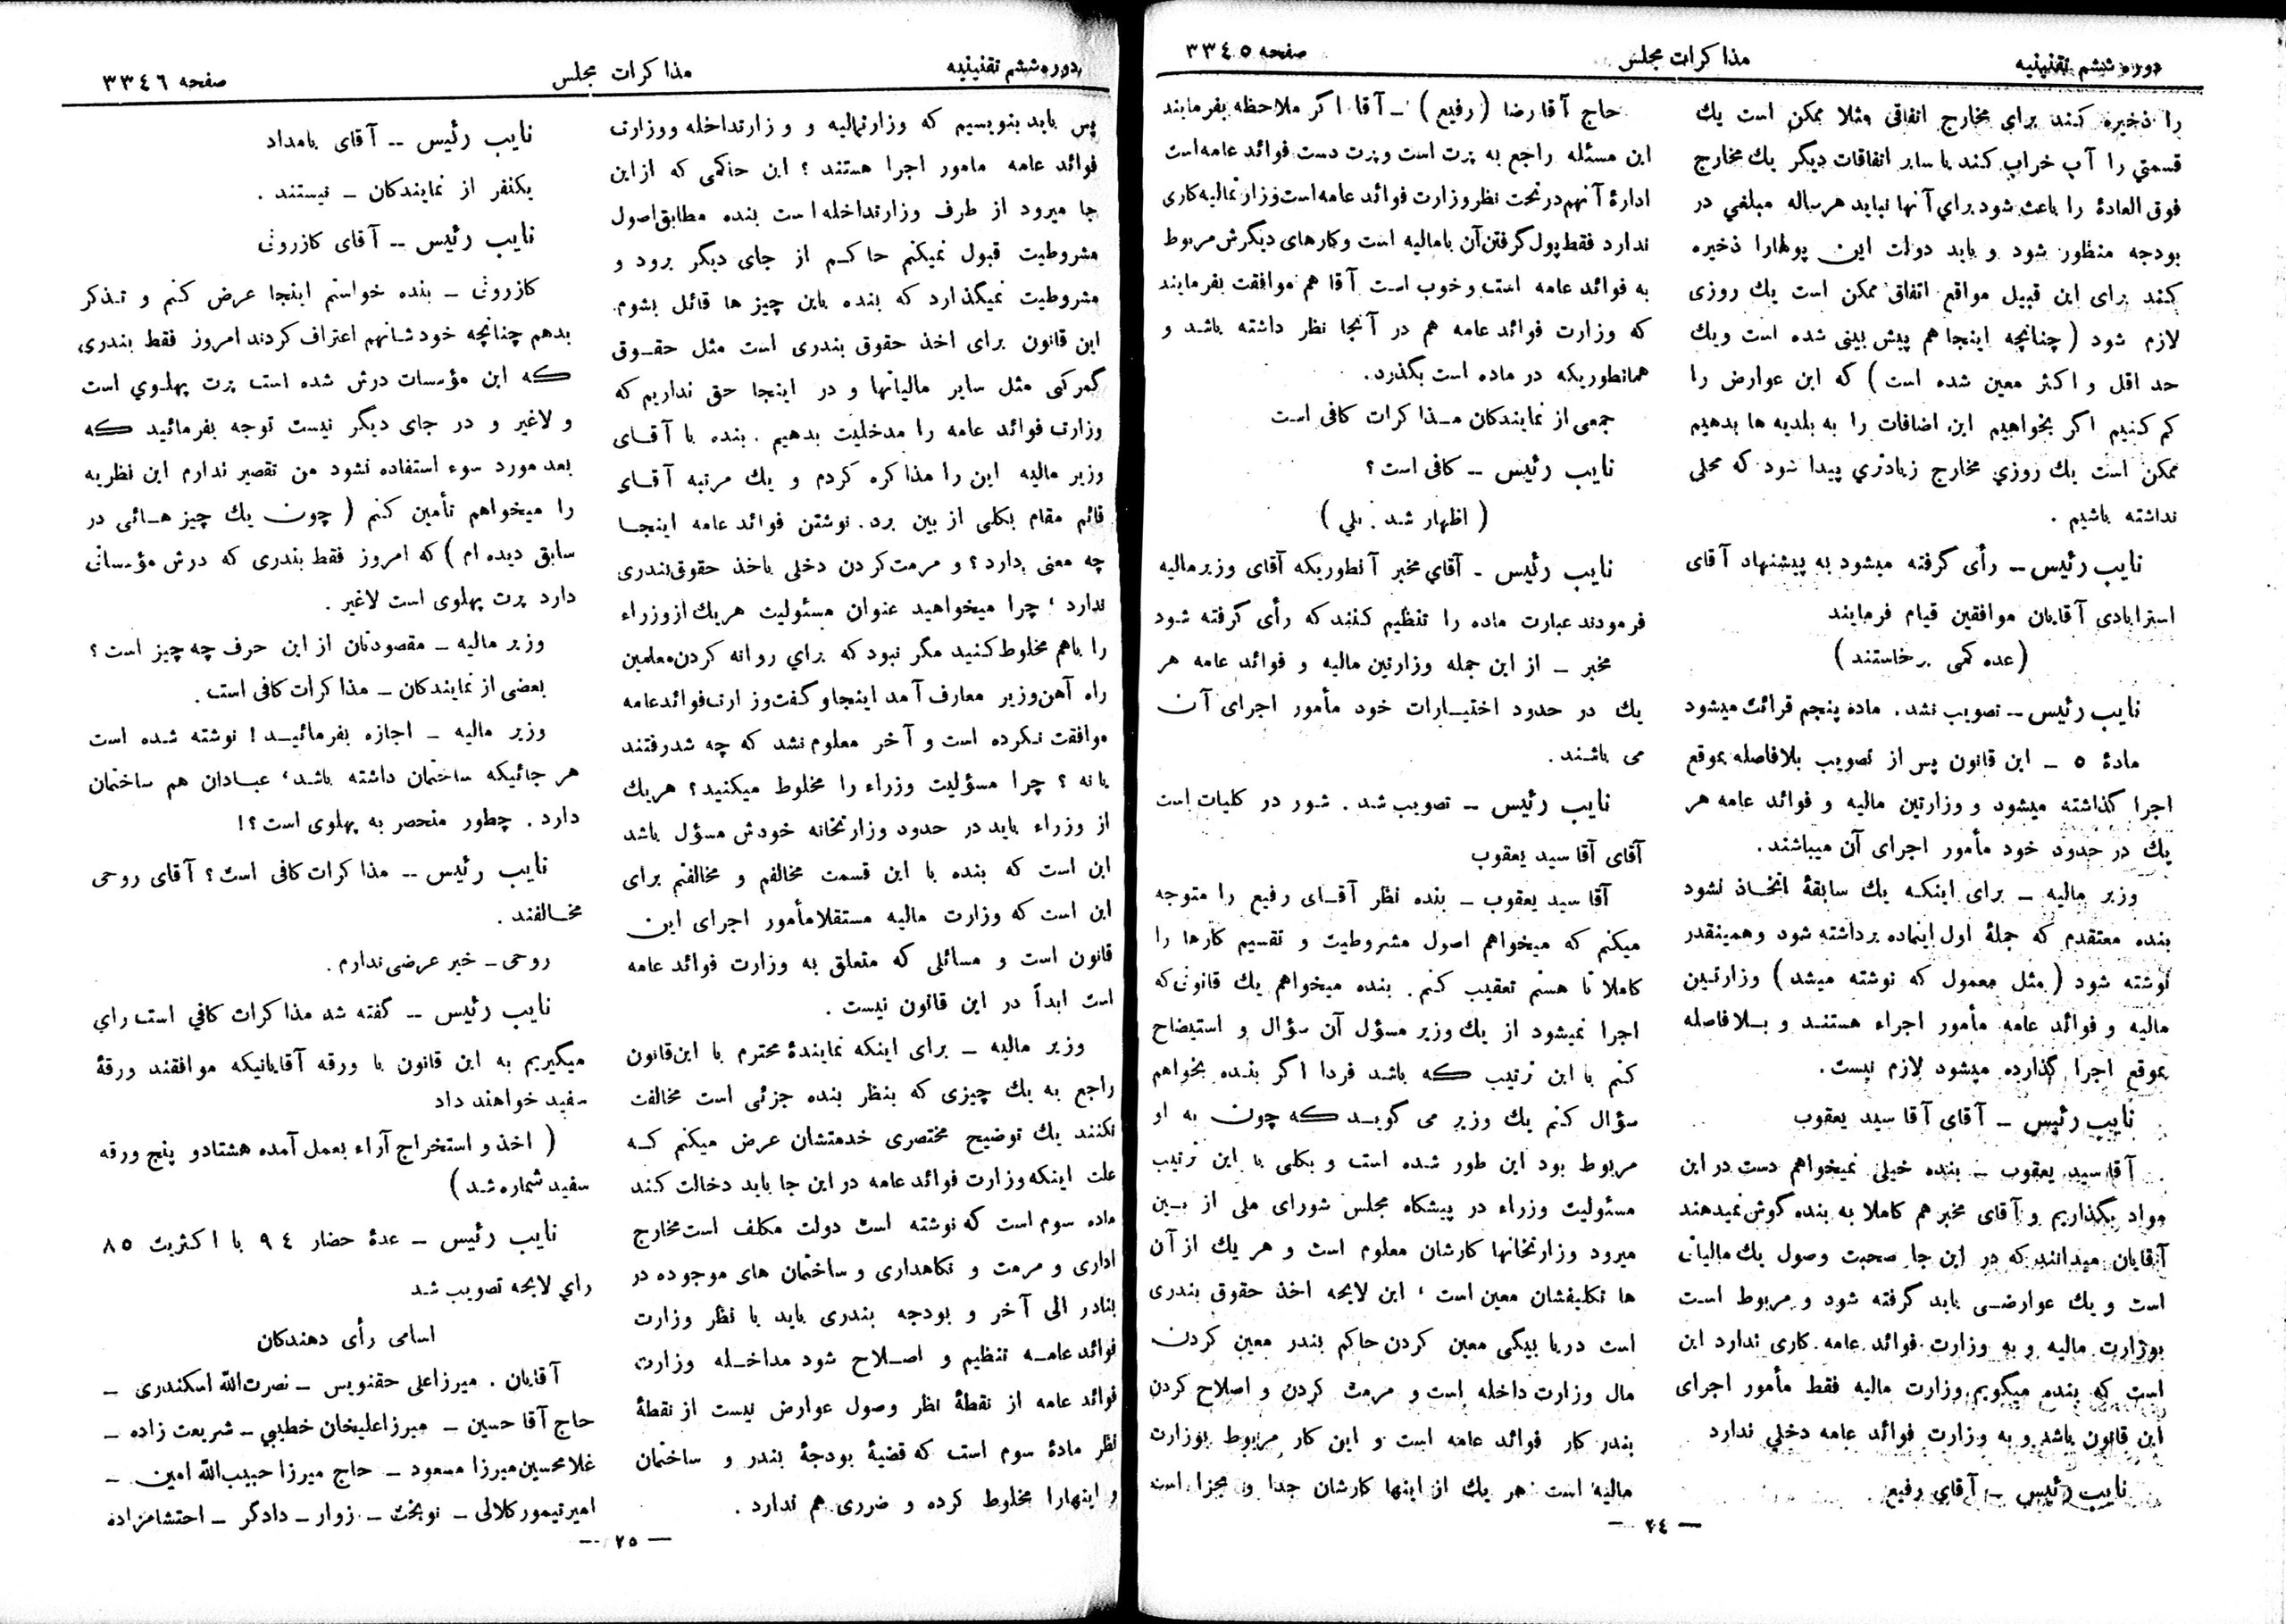 دوره ششم تقنینیه
مذاکرات مجلس
صفحه ٣٣٤٥
را ذخیره کند برای مخارج اتفاقی مثلا ممکن است یك
قسمتی را آب خراب کند یا سایر اتفاقات دیگر یك مخارج
فوق العادۀ را باعث شود برای آنها نباید هرساله مبلغی در
بودجه منظور شود و باید دولت این پولهارا ذخیره
کند برای این قبیل مواقع اتفاق ممکن است یك روزی
لازم شود (چنانچه اینجا هم پیش بینی شده است ویك
حد اقل و اکثر معین شده است) که این عوارض را
کم کنیم اگر بخواهیم این اضافات را به بلدیه ها بدهیم
ممکن است یك روزی مخارج زیادتری پیدا شود که محلی
نداشته باشیم .
نایب رئیس ــ رأی گرفته میشود به پیشنهاد آقای
استرابادی آقایان موافقین قیام فرمایند
(عده کمی برخاستند)
نایب رئیس ــ تصویب نشد . ماده پنجم قرائت میشود
مادۀ ٥ ــ این قانون پس از تصویب بلافاصله بموقع
اجرا گذاشته میشود و وزارتین مالیه و فوائد عامه هر
یك در حدود خود مأمور اجرای آن میباشند .
وزیر مالیه ــ برای اینکه یك سابقۀ اتخاذ نشود
بنده معتقدم که جملۀ اول اینماده برداشته شود وهمینقدر
نوشته شود (مثل معمول که نوشته میشد) وزارتین
مالیه و فوائد عامه مأمور اجراء هستند و بلافاصله
بموقع اجرا گذارده میشود لازم نیست .
نایب رئیس ــ آقای آقا سید یعقوب
آقا سید یعقوب ــ بنده خیلی نمیخواهم دست در این
مواد بگذاریم و آقای مخبر هم کاملا به بنده گوش نمیدهند
آقایان میدانند که در این جا صحبت وصول یك مالیاتی
است و یك عوارضی باید گرفته شود و مربوط است
بوزارت مالیه و به وزارت فوائد عامه کاری ندارد این
است که بنده میگویم وزارت مالیه فقط مأمور اجرای
این قانون باشد و به وزارت فوائد عامه دخلی ندارد
نایب رئیس ــ آقای رفیع
حاج آقا رضا (رفیع) ــ آقا اگر ملاحظه بفرمایند
این مسئله راجع به پرت است و پرت دست فوائد عامه است
ادارۀ آنهم در تحت نظر وزارت فوائد عامه است وزارتمالیه کاری
ندارد فقط پول گرفتن آن با مالیه است وکارهای دیگرش مربوط
به فوائد عامه است وخوب است آقا هم موافقت بفرمایند
که وزارت فوائد عامه هم در آنجا نظر داشته باشد و
همانطوریکه در ماده است بگذرد .
جمعی از نمایندکان مذاکرات کافی است
نایب رئیس ــ کافی است ؟
(اظهار شد . بلی)
نایب رئیس ــ آقای مخبر آنطوریکه آقای وزیر مالیه
فرمودند عبارت ماده را تنظیم کنند که رأی گرفته شود
مخبر ــ از این جمله وزارتین مالیه و فوائد عامه هر
یك در حدود اختیارات خود مأمور اجرای آن
می باشند .
نایب رئیس ــ تصویب شد . شور در کلیات است
آقای آقا سید یعقوب
آقا سید یعقوب ــ بنده نظر آقای رفیع را متوجه
میکنم که میخواهم اصول مشروطیت و تقسیم کارها را
کاملا تا هستم تعقیب کنم . بنده میخواهم یك قانونی که
اجرا نمیشود از یك وزیر مسؤل آن سؤال و استیضاح
کنم با این ترتیب که باشد فردا اگر بنده بخواهم
سؤال کنم یك وزیر می گوید که چون به او
مربوط بود این طور شده است و بکلی با این ترتیب
مسئولیت وزراء در پیشکاه مجلس شورای ملی از بین
میرود وزارتخانها کارشان معلوم است و هر یك از آن
ها تکلیفشان معین است ، این لایحه اخذ حقوق بندری
است دریا بیگی معین کردن حاکم بندر معین کردن
مال وزارت داخله است و مرمت کردن و اصلاح کردن
بندر کار فوائد عامه است و این کار مربوط بوزارت
مالیه است هر یك از اینها کارشان جدا و مجزا است
ــ ٢٤ ــ
دوره ششم تقنینیه
مذاکرات مجلس
صفحه ٣٣٤٦
پس باید بنویسیم که وزارتمالیه و وزارتداخله ووزارت
فوائد عامه مامور اجرا هستند ؟ این حاکمی که از این
جا میرود از طرف وزارتداخله است بنده مطابق اصول
مشروطیت قبول نمیکنم حاکم از جای دیگر برود و
مشروطیت نمیگذارد که بنده باین چیز ها قائل بشوم.
این قانون برای اخذ حقوق بندری است مثل حقوق
گمرکی مثل سایر مالیاتها و در اینجا حق نداریم که
وزارت فوائد عامه را مدخلیت بدهیم . بنده با آقای
وزیر مالیه این را مذاکره کردم و یك مرتبه آقای
قائم مقام بکلی از بین برد . نوشتن فوائد عامه اینجا
چه معنی دارد ؟ و مرمت کردن دخلی باخذ حقوق بندری
ندارد ، چرا میخواهید عنوان مسئولیت هریك از وزراء
را باهم مخلوط کنید مگر نبود که برای روانه کردن معلمین
راه آهن وزیر معارف آمد اینجا و گفت وزارت فوائد عامه
موافقت نکرده است و آخر معلوم نشد که چه شد رفتند
یا نه ؟ چرا مسؤلیت وزراء را مخلوط میکنید ؟ هریك
از وزراء باید در حدود وزارتخانه خودش مسؤل باشد
این است که بنده با این قسمت مخالفم و مخالفتم برای
این است که وزارت مالیه مستقلا مأمور اجرای این
قانون است و مسائلی که متعلق به وزارت فوائد عامه
است ابداً در این قانون نیست .
وزیر مالیه ــ برای اینکه نمایندۀ محترم با این قانون
راجع به یك چیزی که بنظر بنده جزئی است مخالفت
نکنند یك توضیح مختصری خدمتشان عرض میکنم که
علت اینکه وزارت فوائد عامه در این جا باید دخالت کند
ماده سوم است که نوشته است دولت مکلف است مخارج
اداری و مرمت و نگاهداری و ساختمان های موجوده در
بنادر الی آخر و بودجه بندری باید با نظر وزارت
فوائد عامه تنظیم و اصلاح شود مداخله وزارت
فوائد عامه از نقطۀ نظر وصول عوارض نیست از نقطۀ
نظر مادۀ سوم است که قضیۀ بودجۀ بندر و ساختمان
و اینهارا مخلوط کرده و ضرری هم ندارد .
نایب رئیس ــ آقای بامداد
یکنفر از نمایندکان ــ نیستند .
نایب رئیس ــ آقای کازرونی
کازرونی ــ بنده خواستم اینجا عرض کنم و تذکر
بدهم چنانچه خودشانهم اعتراف کردند امروز فقط بندری
که این مؤسسات درش شده است پرت پهلوی است
و لاغیر و در جای دیگر نیست توجه بفرمائید که
بعد مورد سوء استفاده نشود من تقصیر ندارم این نظریه
را میخواهم تأمین کنم (چون یك چیز هائی در
سابق دیده ام) که امروز فقط بندری که درش مؤسساتی
دارد پرت پهلوی است لاغیر .
وزیر مالیه ــ مقصودتان از این حرف چه چیز است ؟
بعضی از نمایندکان ــ مذاکرات کافی است .
وزیر مالیه ــ اجازه بفرمائید ! نوشته شده است
هر جائیکه ساختمان داشته باشد ، عبادان هم ساختمان
دارد . چطور منحصر به پهلوی است ؟!
نایب رئیس ــ مذاکرات کافی است ؟ آقای روحی
مخالفند .
روحی ــ خیر عرضی ندارم .
نایب رئیس ــ گفته شد مذاکرات کافی است رای
میگیریم به این قانون با ورقه آقایانیکه موافقند ورقۀ
سفید خواهند داد
(اخذ و استخراج آراء بعمل آمده هشتادو پنج ورقه
سفید شماره شد)
نایب رئیس ــ عدۀ حضار ٩٤ با اکثریت ٨٥
رای لایحه تصویب شد
اسامی رأی دهندکان
آقایان . میرزاعلی حقنویس ــ نصرت‌الله اسکندری ــ
حاج آقا حسین ــ میرزا علیخان خطیبی ــ شریعت زاده ــ
غلامحسین میرزا مسعود ــ حاج میرزا حبیب‌الله امین ــ
امیر تیمور کلالی ــ نوبخت ــ زوار ــ دادگر ــ احتشامزاده
ــ ٢٥ ــ